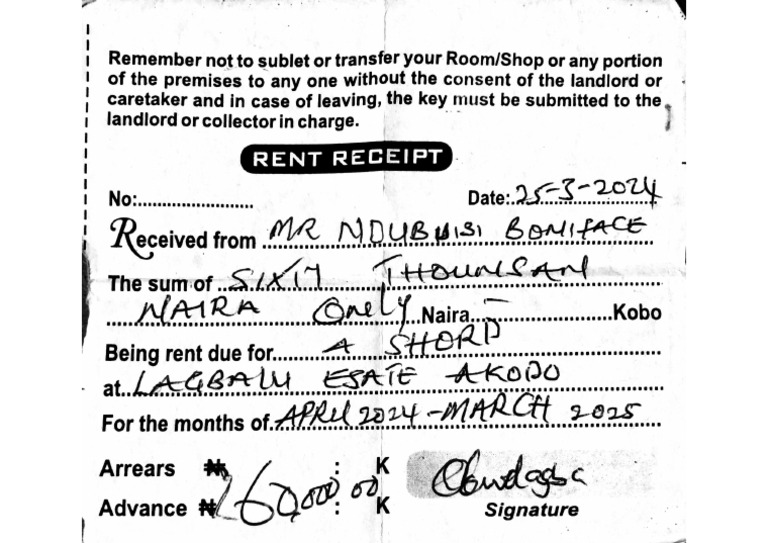 Remember not to sublet or transfer your Room/Shop or any portion
of the premises to any one without the consent of the landlord or
caretaker and in case of leaving, the key must be submitted to the
landlord or collector in charge.
RENT RECEIPT
No:........................ Date: 25-3-2024
Received from MR NDUBUISI BONIFACE
The sum of SIXTY THOUNSAN
NAIRA Onely Naira – Kobo
Being rent due for A SHORP
at LAGBALU ESATE AKODO
For the months of APRIL 2024 - MARCH 2025
Arrears ₦ : K
Advance ₦ 60,000 00 : K Signature